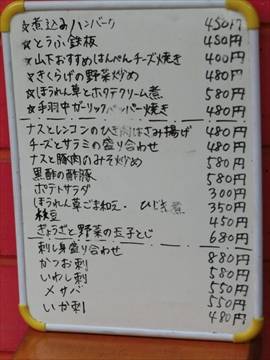 ☆煮込みハンバーグ 450円
☆とうふ鉄板 450円
☆山下おすすめはんぺんチーズ焼き 400円
☆きくらげの野菜炒め 480円
☆ほうれん草とホタテクリーム煮 580円
☆手羽中ガーリックペッパー焼き 480円
ナスとレンコンのひき肉はさみ揚げ 480円
チーズとサラミの盛り合わせ 480円
ナスと豚肉のみそ炒め 580円
黒酢の酢豚 580円
ポテトサラダ 300円
ほうれん草ごま和え・ひじき煮 350円
枝豆 450円
ぎょうざと野菜の玉子とじ 680円
刺し身盛り合わせ 880円
かつお刺 580円
いわし刺 550円
メサバ 550円
いか刺 480円